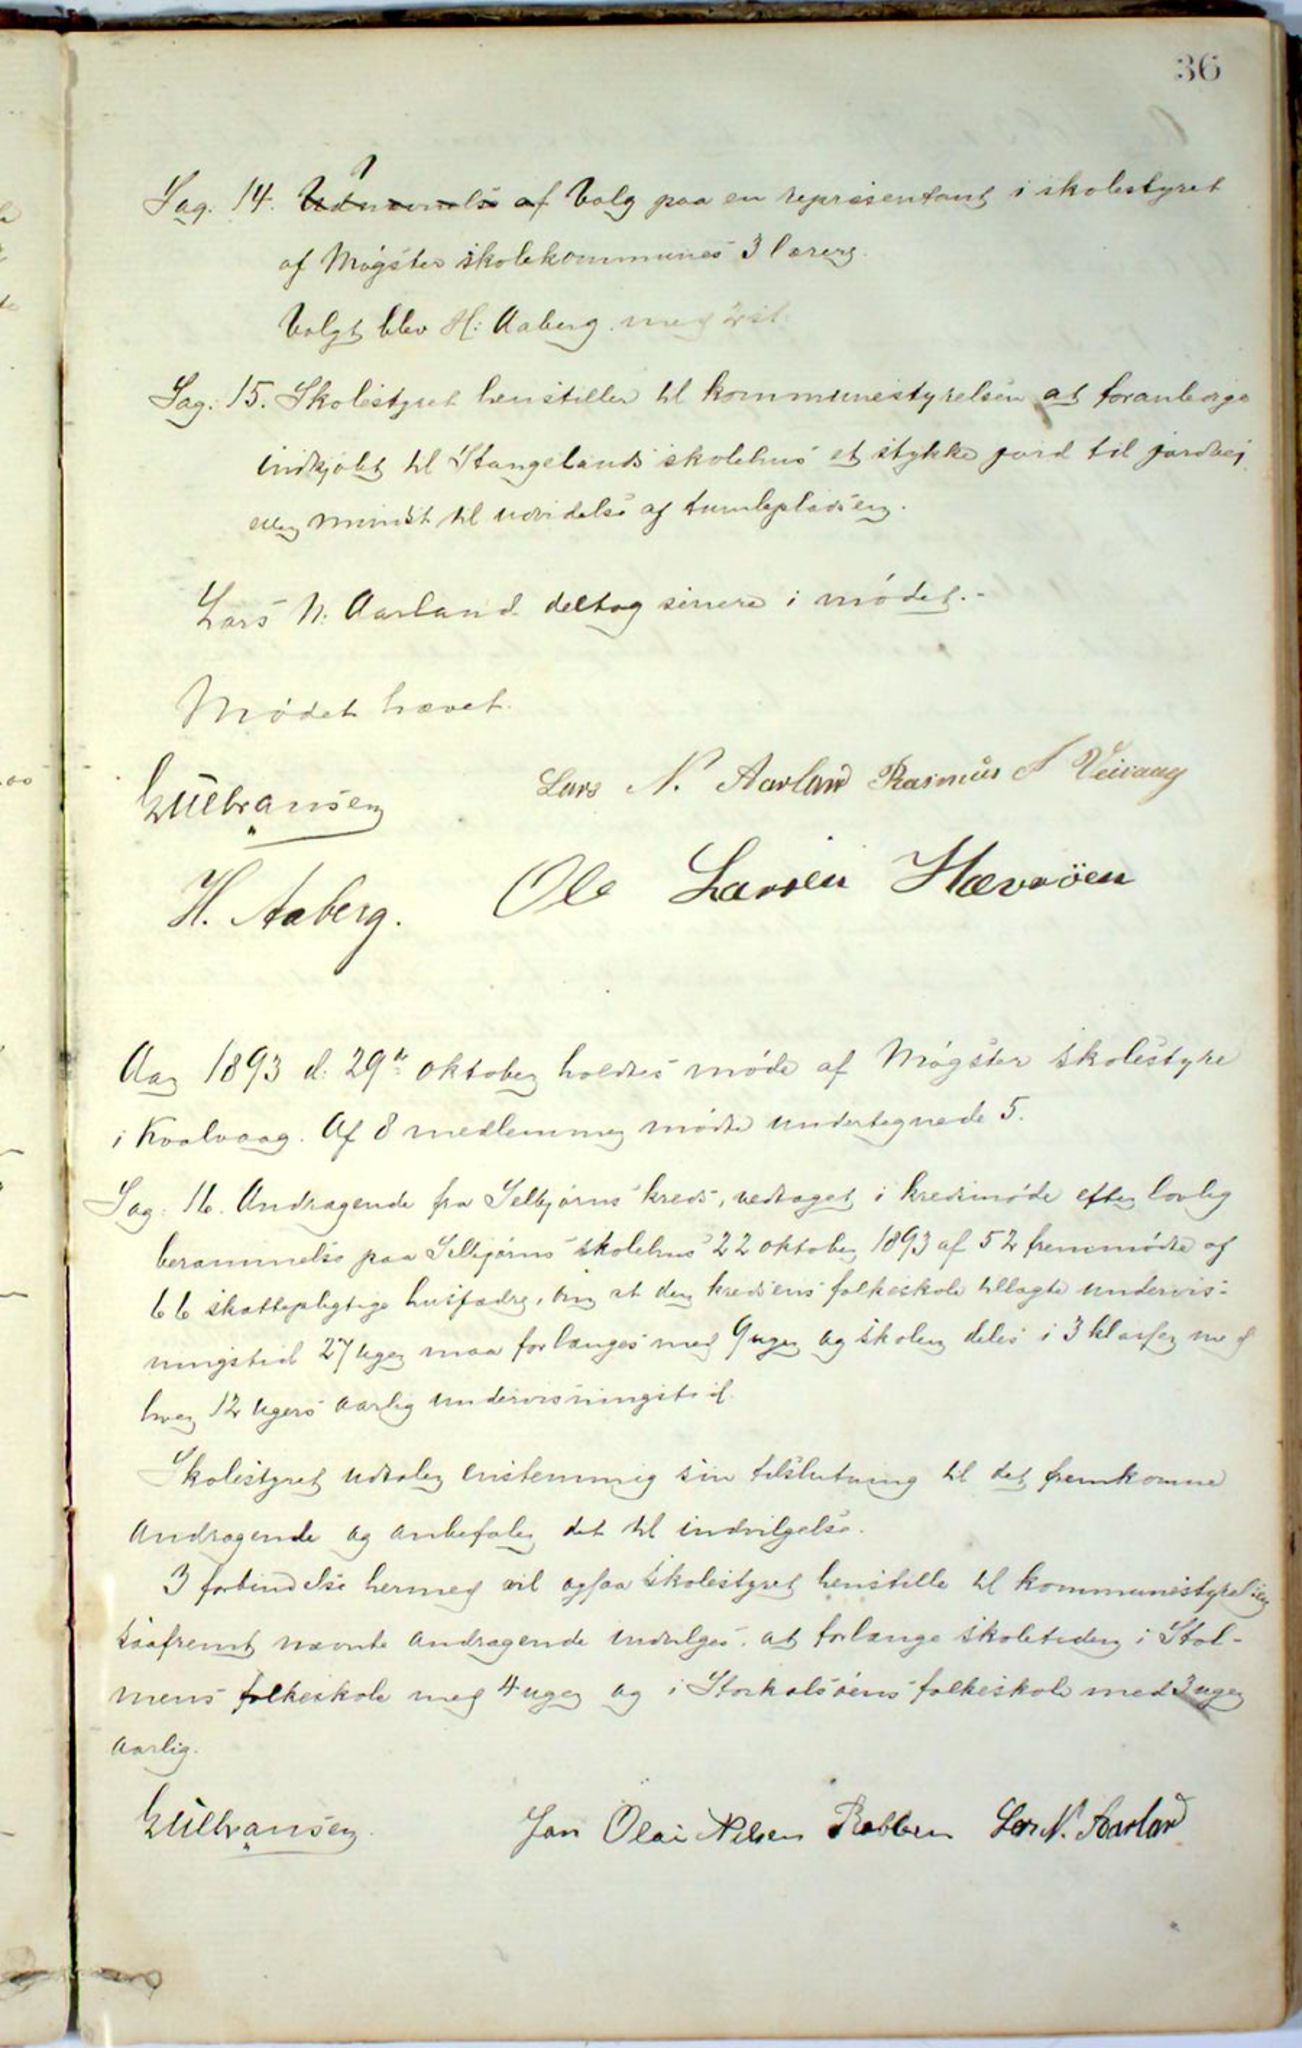 36
Sag. 14. Udnævnelse af Valg paa en repræsentant i skolestyret
af Møgster skolekommunes 3 lærere.
Valgt blev H: Aaberg med 2 st.
Sag: 15. Skolestyret henstiller til kommunestyrelsen at foranledige
indkjøbt til Stangelands skolehus et stykke jord til jordvei
eller mindst til udvidelse af tumlepladsen.
Lars N: Aarland deltog senere i mødet.-
Mødet hævet.
Gulbransen
Lars N. Aarland Rasmus A Veivaag
H. Aaberg. Ole Larsen Hævrøen
Aar 1893 d: 29de oktober holdtes møde af Møgster skolestyre
i Kvalvaag. Af 8 medlemmer mødte undertegnede 5.
Sag: 16. Andragende fra Selbjørns kreds, vedtaget i kredsmøde efter lovlig
berammelse paa Selbjørns skolehus 22 oktober 1893 af 52 fremmødte af
66 skattepligtige husfædre, om at den kredsens folkeskole tillagte undervis-
ningstid 27 uger maa forlænges med 9 uger og skolen deles i 3 klasser med
hver 12 ugers aarlig undervisningstid.
Skolestyret udtaler enstemmig sin tilslutning til det fremkomne
andragende og anbefaler det til indvilgelse.
I forbindelse hermed vil ogsaa skolestyret henstille til kommunestyrelsen
saafremt nævnte andragende indvilges, at forlænge skoletiden i Stol-
mens folkeskole med 4 uger og i Storkalsøens folkeskole med 3 uger
aarlig.
Gulbransen. Jan Olai Nilsen Robben Lars N. Aarland